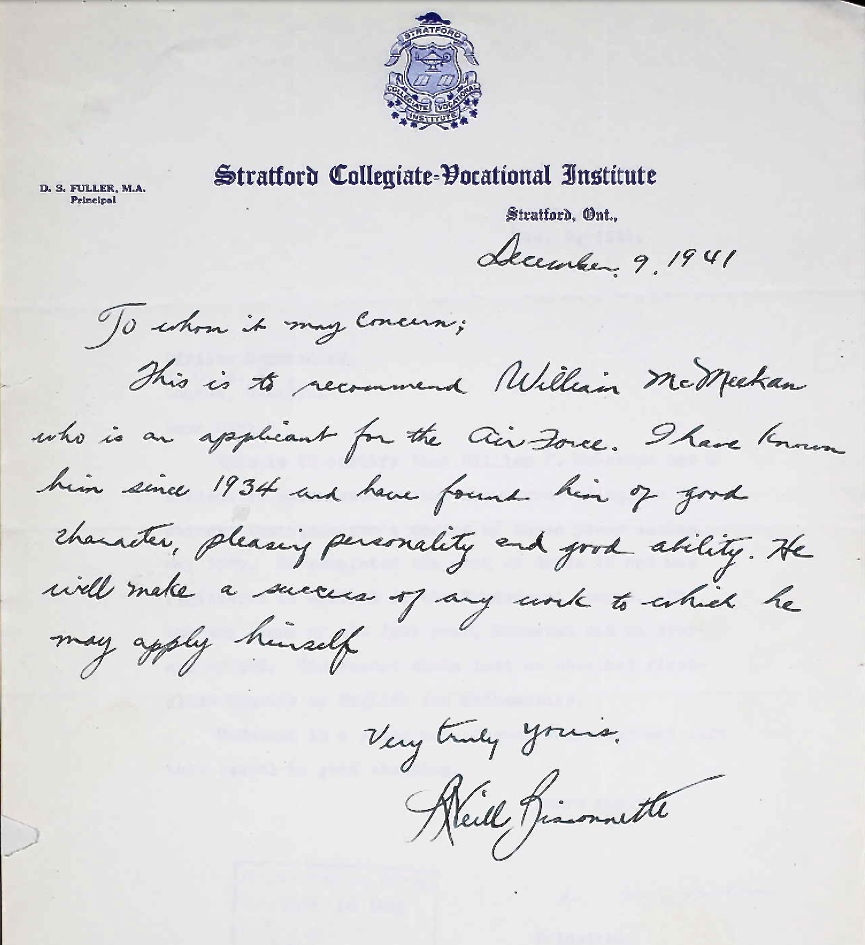 STRATFORD
COLLEGIATE VOCATIONAL
INSTITUTE
Stratford Collegiate-Vocational Institute
D. S. FULLER, M.A.
Principal
Stratford, Ont.,
December. 9. 1941
To whom it may concern;
This is to recommend William McMeekan
who is an applicant for the Air Force. I have known
him since 1934 and have found him of good
character, pleasing personality and good ability. He
will make a success of any work to which he
may apply himself
Very truly yours.
Neill Bissonnette